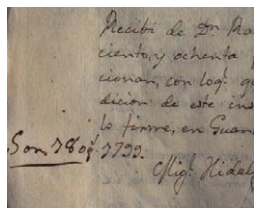 Recibí de Dn. Ra
ciento, y ochenta
cionan, con loq.e q
dicion de este ins
lo firmé, en Guan
Son 180p.s 1799.
Mig.l Hidal